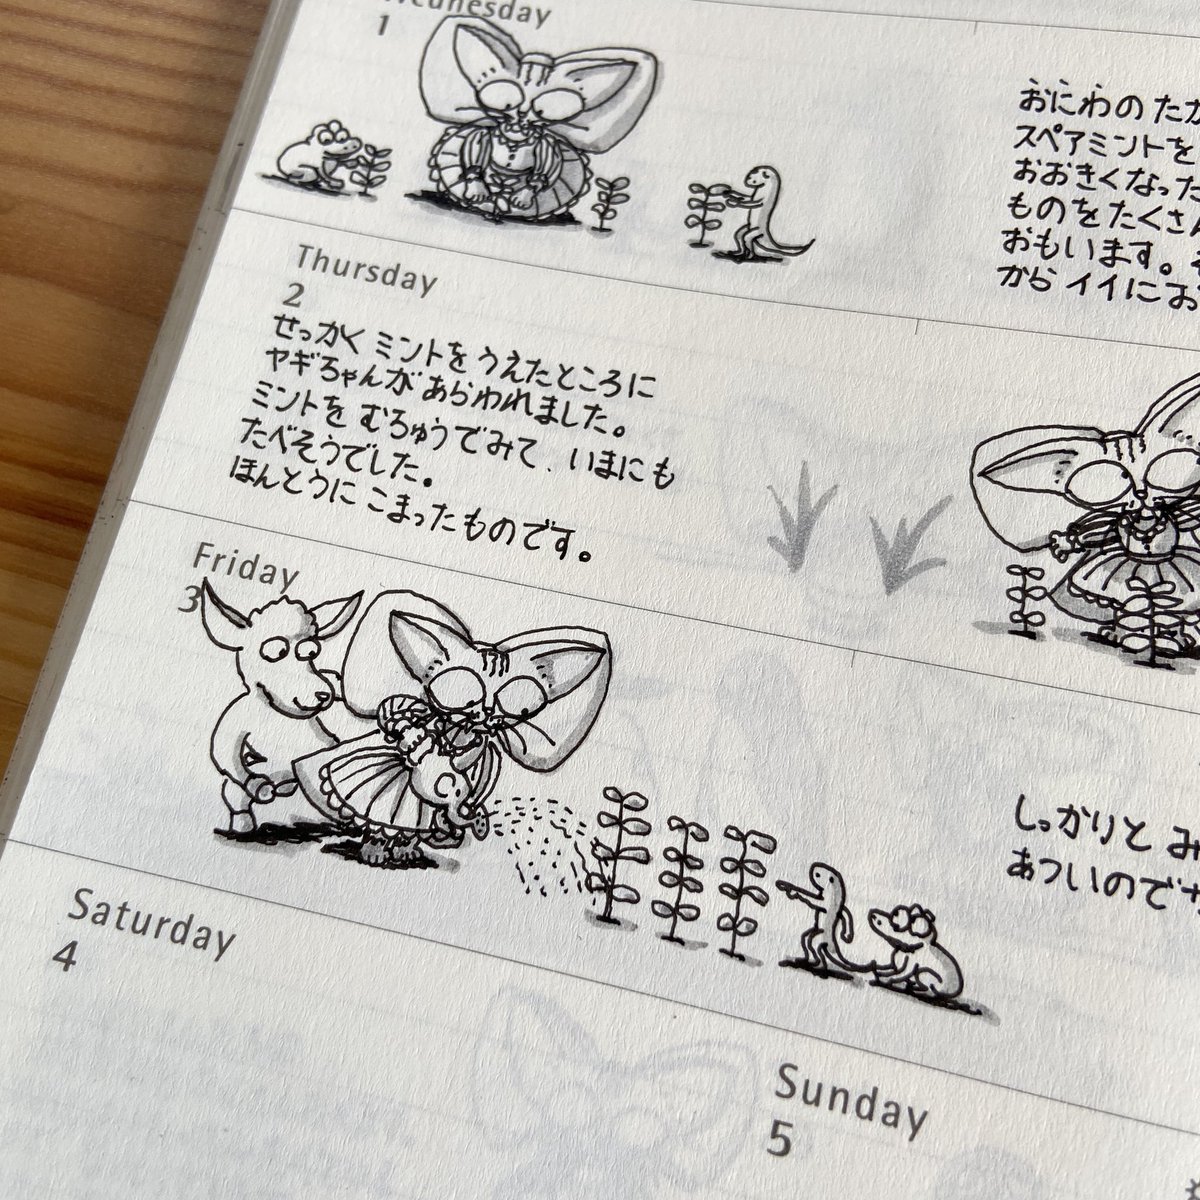 Wednesday
1
おにわの たか
スペアミントを
おおきくなった
ものをたくさん
おもいます。そ
から イイにお
Thursday
2
せっかく ミントを うえたところに
ヤギちゃんが あらわれました。
ミントを むちゅうでみて、いまにも
たべそうでした。
ほんとうに こまったものです。
Friday
3
しっかりと み
あついのです
Saturday
4
Sunday
5